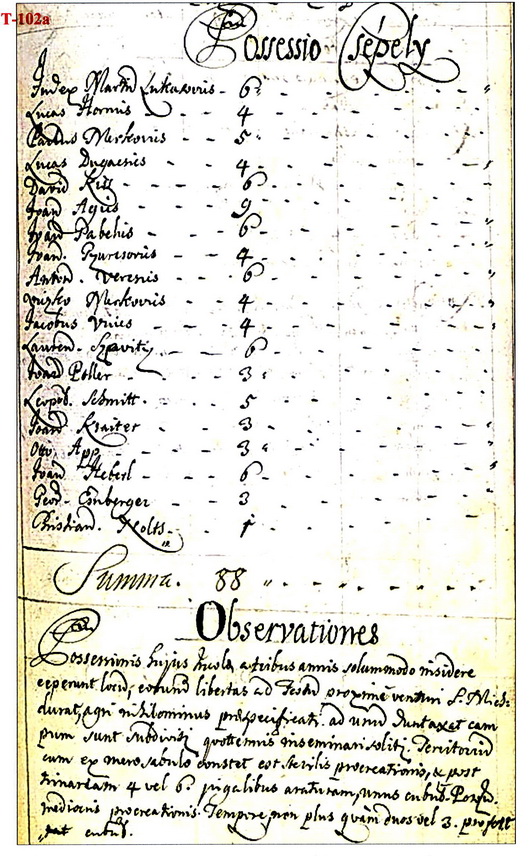 T-102a
Possessio Csépely
Judex Martin Lukasovis - 6
Lucas Hornis 4
Paulus Merkovis 5
Lucas Dugacsis 4
David Kill 6
Joan Agics 9
Joan Babehis 6
Joan. Gyuresovis 4
Anton. Verenis 6
Mirko Merkovis 4
Jacobus Vuics 4
Lauren. 6
Joan Poller 3
Leopol. Schmitt. 5
Joan Kraiter 3
Otto App 3
Joan Heberl 6
Geor. Emberger 3
Christian. Holts 1
Summa. 88
Observationes
Possessionis hujus Incolae a tribus annis solummodo insidere
ceperunt locum, eorund libertas ad Festum proxime venturi S. Mich:
durat, agri nihilominus praespecificati ad unum duntaxat cam
pum sunt subdivisi, quottannis inseminari soliti. Territorium
cum ex mero sabulo constet est sterilis procreationis, & post
trinariam 4 vel 6. jugalibus araturam, unus cubul. Poson.
mediocris procreationis. Tempore, non plus quam duos vel 3.
cubul.